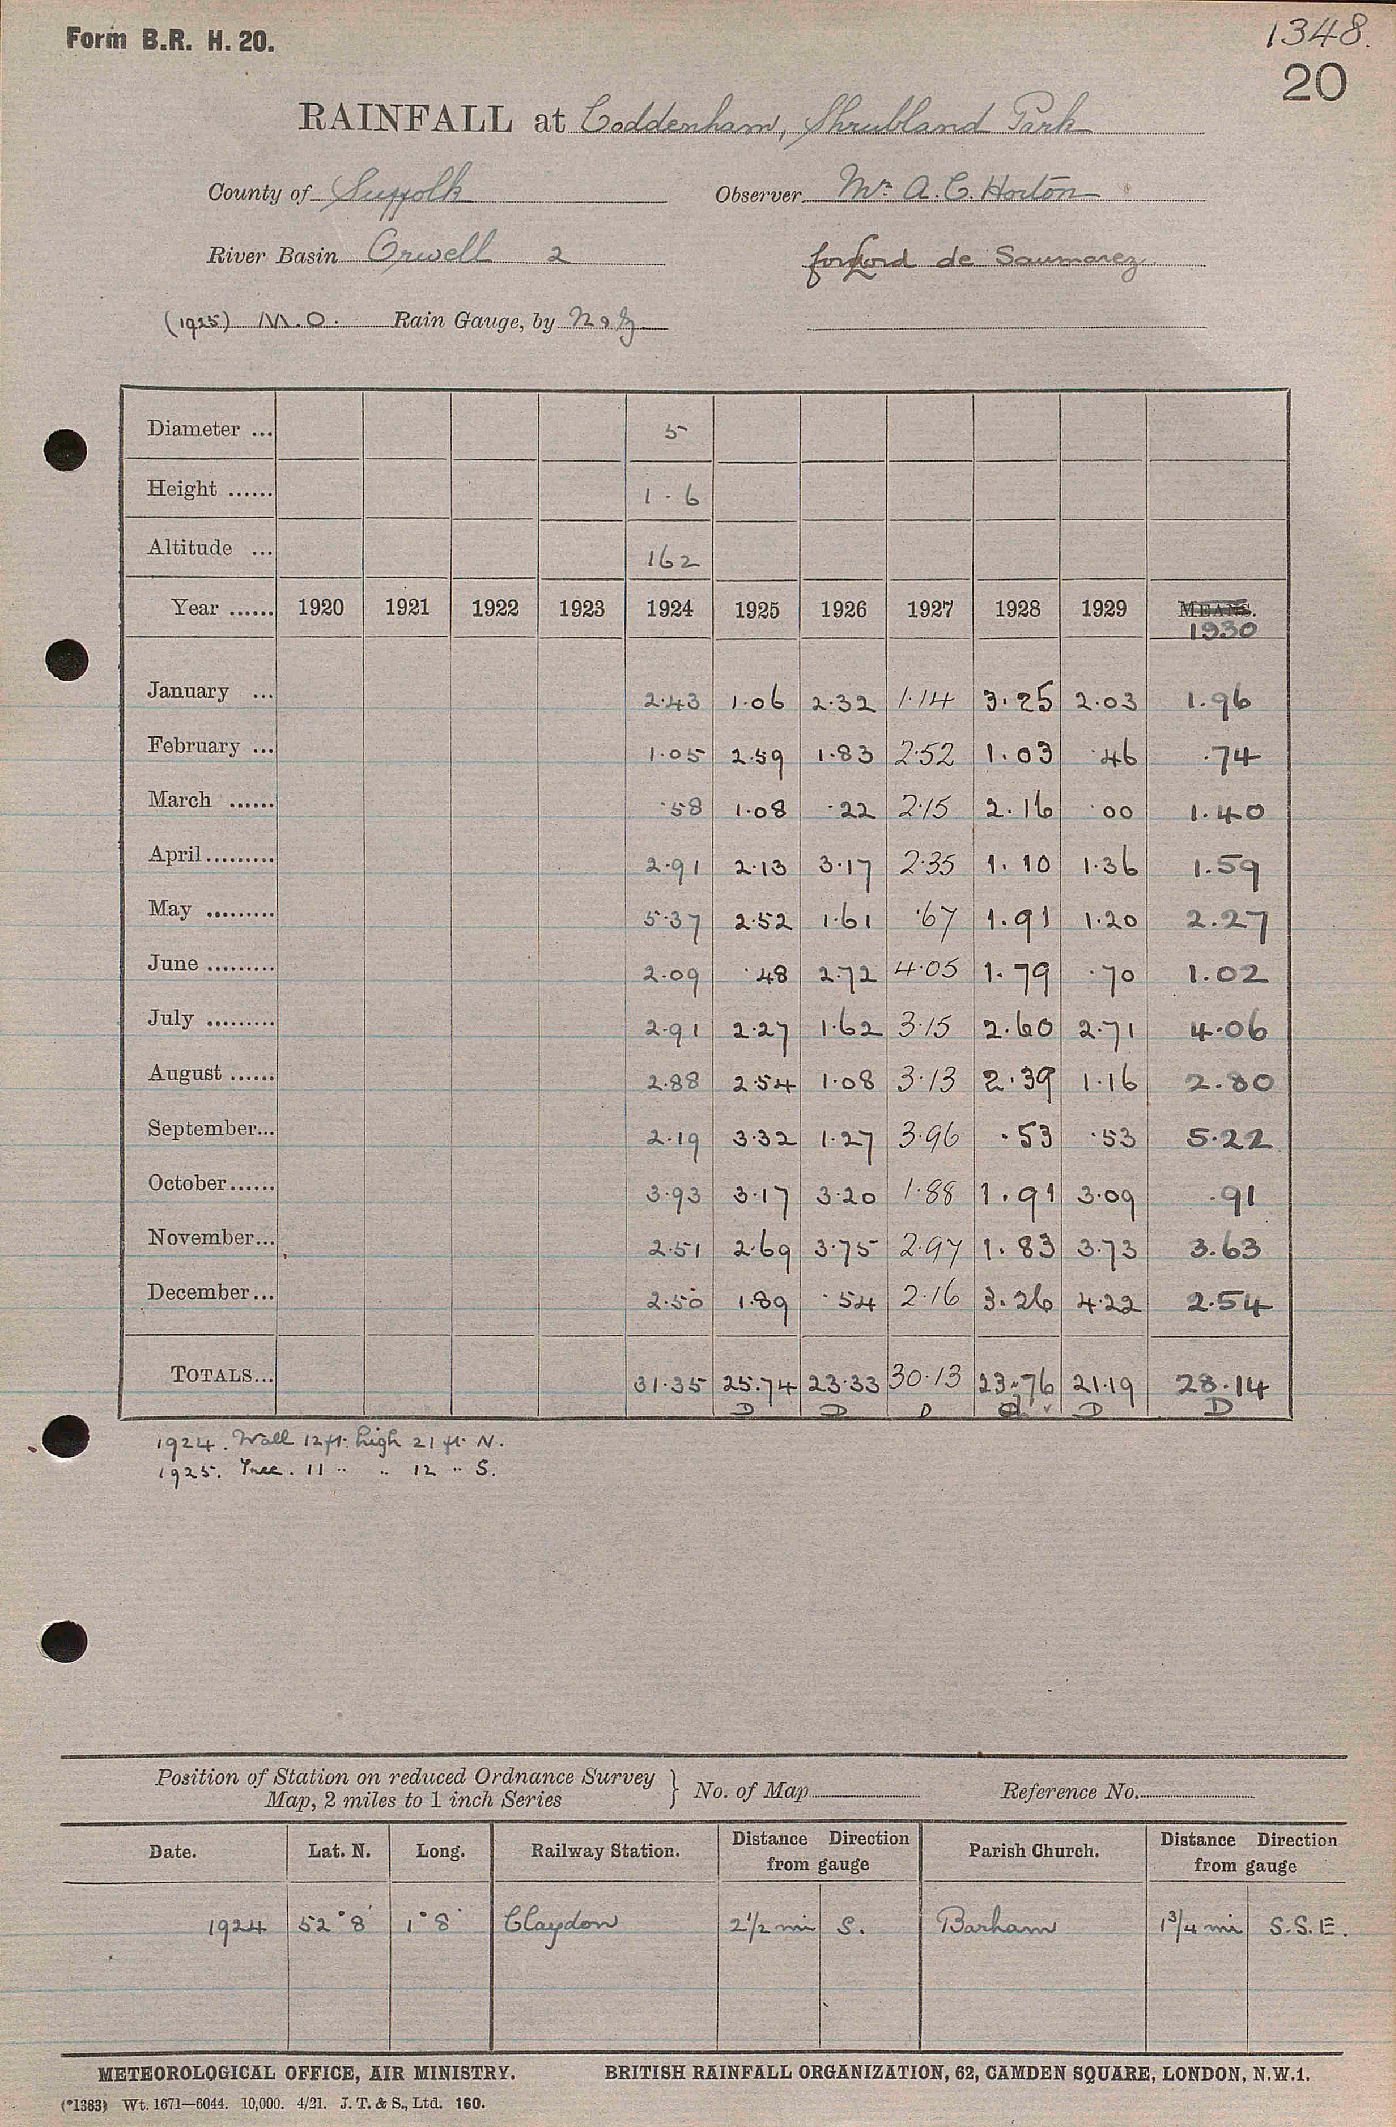 Form B.R. H. 20.
1348.
20
RAINFALL at Coddenham, Shrubland Park
County of Suffolk Observer Mr. A. C. Horton
River Basin Orwell 2 for Lord de Saumarez
(1925) M.O. Rain Gauge, by N & Z
Diameter ... 5
Height ...... 1 - 6
Altitude ... 162
Year ...... 1920 1921 1922 1923 1924 1925 1926 1927 1928 1929 MEANS.
1930
January ... 2.43 1.06 2.32 1.14 3.25 2.03 1.96
February ... 1.05 2.59 1.83 2.52 1.03 .46 .74
March ...... .58 1.08 .22 2.15 2.16 .00 1.40
April ......... 2.91 2.13 3.17 2.35 1.10 1.36 1.59
May ......... 5.37 2.52 1.61 .67 1.91 1.20 2.27
June ......... 2.09 .48 2.72 4.05 1.79 .70 1.02
July ......... 2.91 2.27 1.62 3.15 2.60 2.71 4.06
August ...... 2.88 2.54 1.08 3.13 2.39 1.16 2.80
September... 2.19 3.32 1.27 3.96 .53 .53 5.22
October...... 3.93 3.17 3.20 1.88 1.91 3.09 .91
November... 2.51 2.69 3.75 2.97 1.83 3.73 3.63
December... 2.50 1.89 .54 2.16 3.26 4.22 2.54
TOTALS... 31.35 25.74 23.33 30.13 23.76 21.19 28.14
D D D D D
1924. Wall 12 ft. high 21 ft. N.
1925. Tree. 11 " " 12 " S.
Position of Station on reduced Ordnance Survey
Map, 2 miles to 1 inch Series } No. of Map Reference No.
Date. Lat. N. Long. Railway Station. Distance Direction from gauge Parish Church. Distance Direction from gauge
1924 52° 8' 1° 8' Claydon 2 1/2 mi S. Barham 1 3/4 mi S.S.E.
METEOROLOGICAL OFFICE, AIR MINISTRY. BRITISH RAINFALL ORGANIZATION, 62, CAMDEN SQUARE, LONDON, N.W.1.
(*1383) Wt. 1671—6044. 10,000. 4/21. J. T. & S., Ltd. 160.